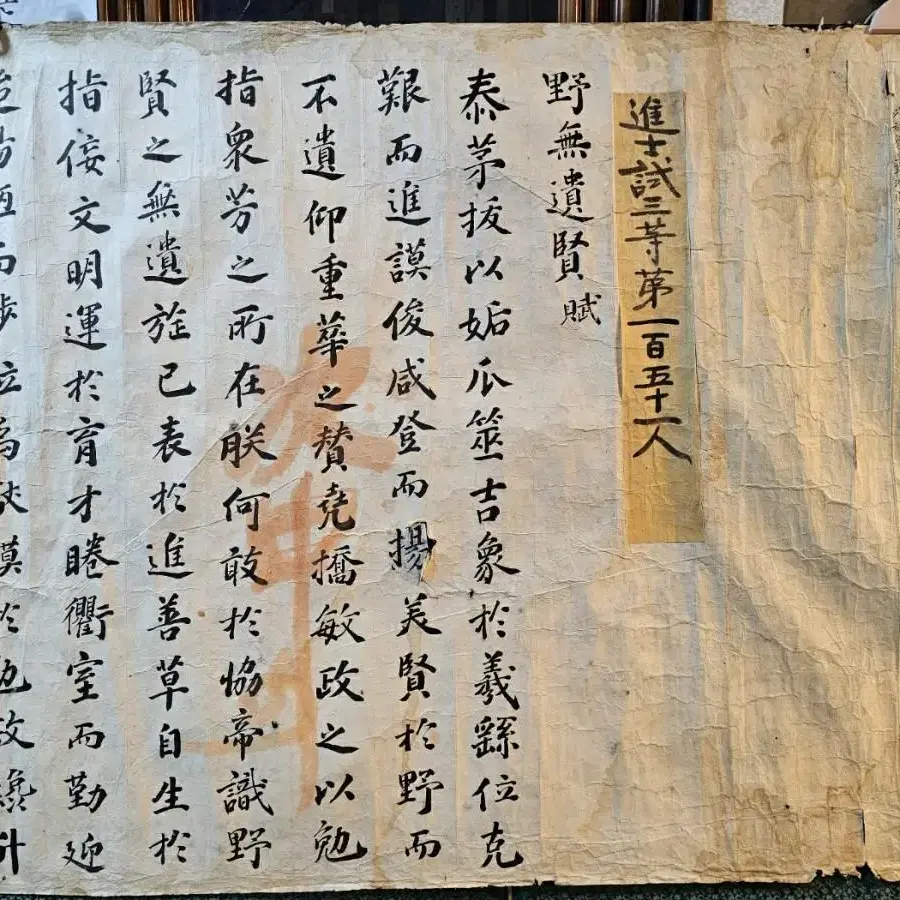 進士試三等第一百五十一人
野無遺賢賦
泰茅拔以姤瓜筮吉象於羲繇位克
艱而進謨俊咸登而揚美賢於野而
不遺仰重華之贊堯搐敏政之以勉
指眾芳之所在朕何敢於恊帝識野
賢之無遺旌已表於進善草自生於
指佞文明運於育才睠衢室而勤迎